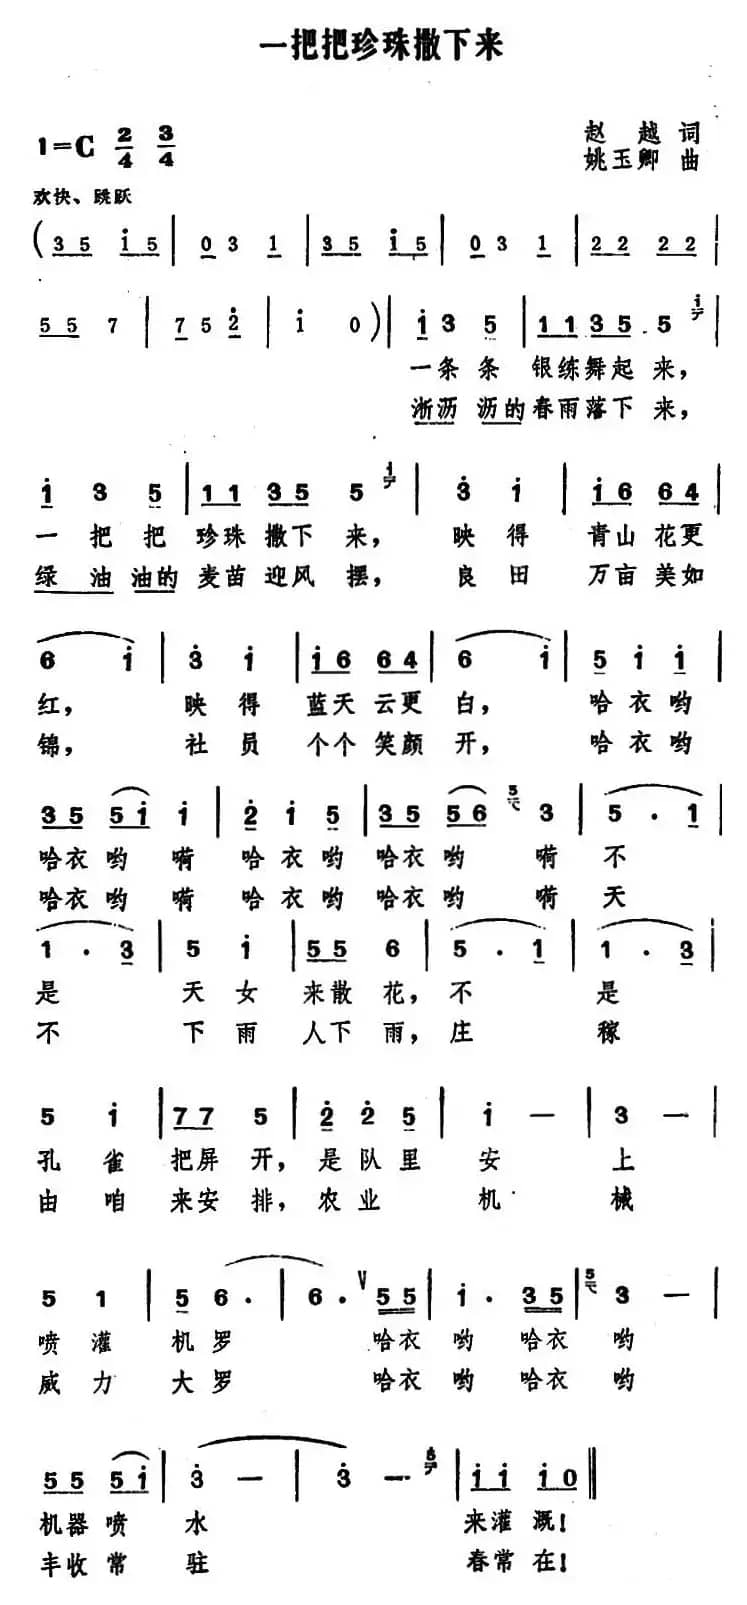 一把把珍珠撒下来
1=C 2/4 3/4
赵越词
姚玉卿曲
欢快、跳跃
( 3 5 i 5 | 0 3 1 | 3 5 i 5 | 0 3 1 | 2 2 2 2 |
5 5 7 | 7 5 2 | i 0 ) | i 3 5 | 1 1 3 5 5 i |
一条条 银练舞起来,
淅沥沥的春雨落下来,
i 3 5 | 1 1 3 5 5 i | 3 i | i 6 6 4 |
一把把 珍珠撒下来, 映得 青山花更
绿油油的麦苗迎风摆, 良田 万亩美如
6 i | 3 i | i 6 6 4 | 6 i | 5 i i |
红, 映得 蓝天云更白, 哈衣哟
锦, 社员 个个笑颜开, 哈衣哟
3 5 5 i i | 2 i 5 | 3 5 5 6 5 3 | 5 · 1 |
哈衣哟嗬 哈衣哟 哈衣哟嗬 不
哈衣哟嗬 哈衣哟 哈衣哟嗬 天
1 · 3 | 5 i | 5 5 6 | 5 · 1 | 1 · 3 |
是 天女 来散花, 不 是
不 下雨 人下雨, 庄 稼
5 i | 7 7 5 | 2 2 5 | i — | 3 — |
孔雀 把屏开, 是队里 安 上
由咱 来安排, 农业 机 械
5 1 | 5 6 · | 6 · V 5 5 | i · 3 5 | 5 3 — |
喷灌 机罗 哈衣哟 哈衣哟
威力 大罗 哈衣哟 哈衣哟
5 5 5 i | 3 — | 3 — 5 | i i i 0 ‖
机器喷水 来灌溉!
丰收常驻 春常在!